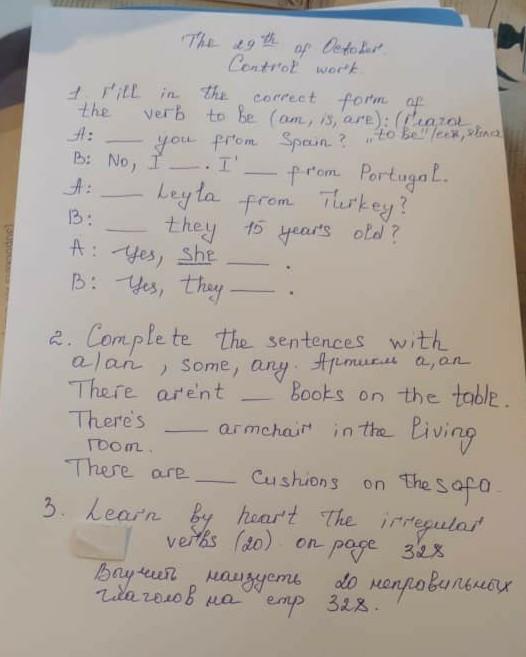 The 29th of October.
Control work.
1. Fill in the correct form of
the verb to be (am, is, are): (Глагол
A: __ you from Spain? „to be"
B: No, I __. I' __ from Portugal.
A: __ Leyla from Turkey?
B: __ they 15 years old?
A: Yes, she __.
B: Yes, they __.
2. Complete the sentences with
a/an, some, any. Артикль a, an
There aren't __ books on the table.
There's __ armchair in the living
room.
There are __ cushions on the sofa.
3. Learn by heart the irregular
verbs (20) on page 328
Выучить наизусть 20 неправильных
глаголов на стр 328.